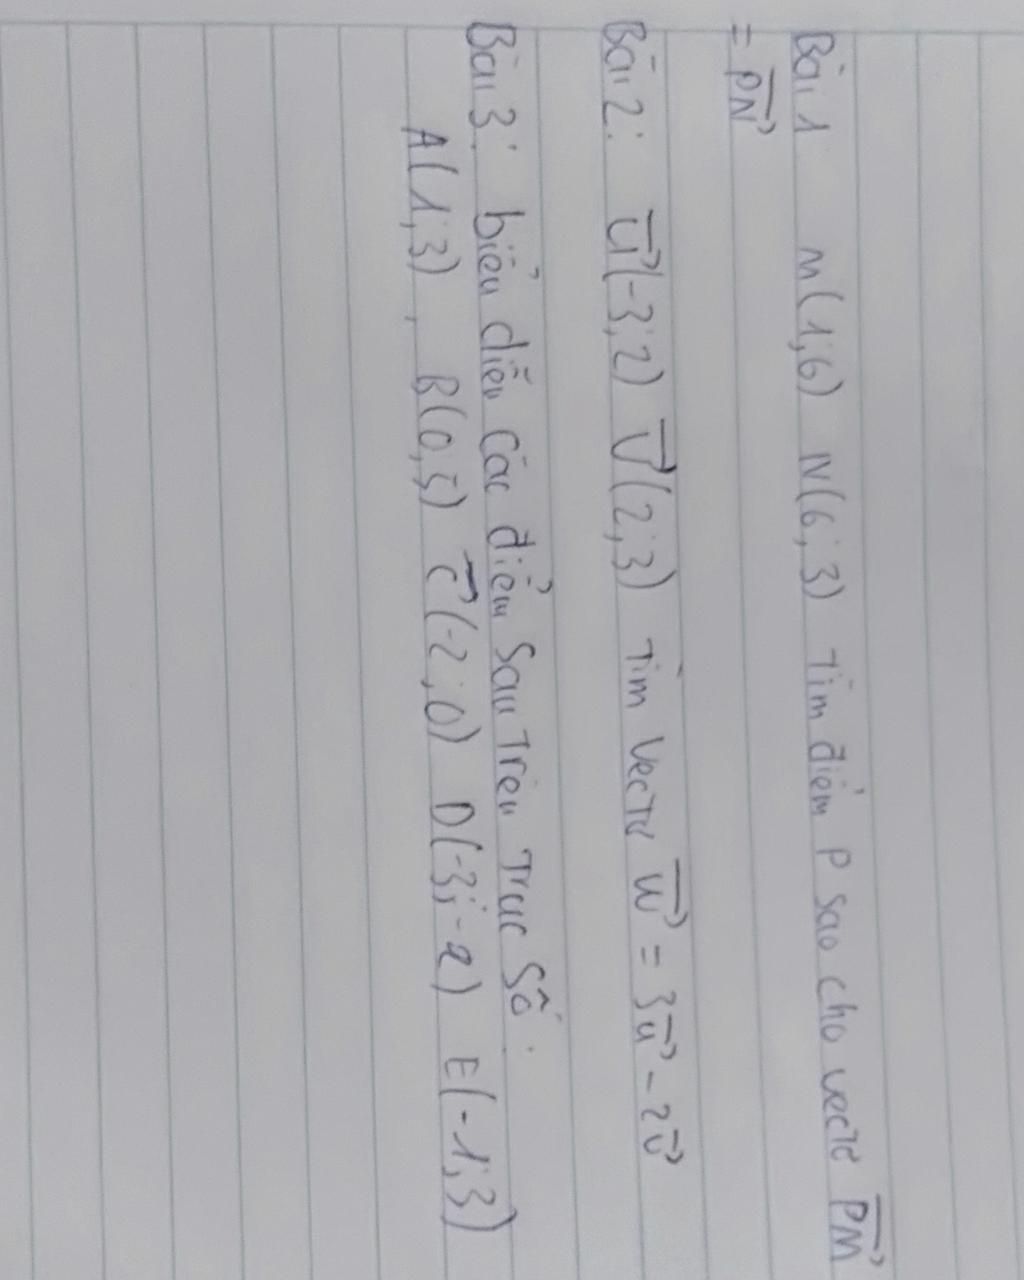 Bài 1 M(1;6) N(6;3) Tìm điểm P sao cho vectơ PM⃗
= PN⃗
Bài 2: u⃗(-3;2) v⃗(2;3) Tìm vectơ w⃗ = 3u⃗ - 2v⃗
Bài 3: biểu diễn các điểm sau trên trục số.
A(1;3), B(0;5) C⃗(-2;0) D(-3;-2) E(-1;3)